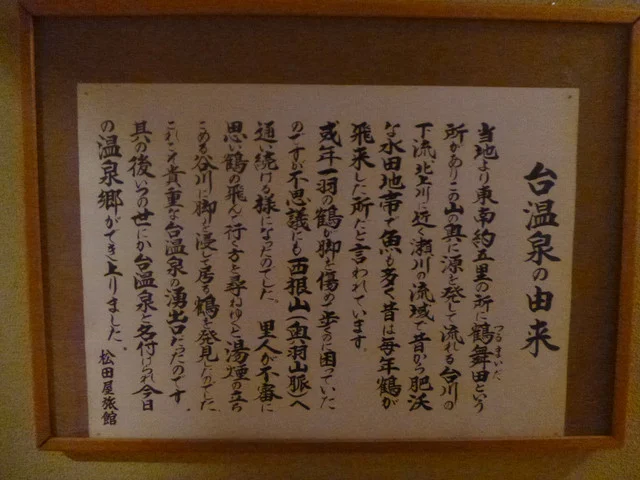 台温泉の由来
当地より東南約五里の所に鶴舞田という
つるまいだ
所がありこの山の奥に源を発して流れる台川の
下流北上川に近く瀬川の流域で昔から肥沃
な水田地帯で魚も多く昔は毎年鶴が
飛来した所だと言われています。
或年一羽の鶴が脚を傷め歩くのに困っていた
のですが不思議にも西根山(奥羽山脈)へ
通い続ける様になったのでした。里人が不審に
思い鶴の飛んで行く方を尋ねゆくと湯煙の立ち
こめる谷川に脚を浸して居る鶴を発見したのでした。
これこそ貴重な台温泉の湧出口だったのです。
其の後いつの世にか台温泉と名付けられ今日
の温泉郷ができ上りました。
松田屋旅館